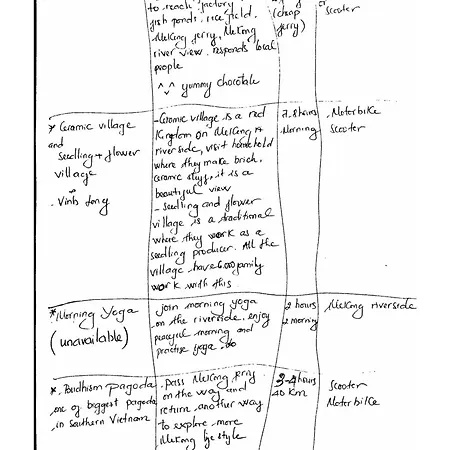 to reach factory
fish ponds. rice field.
MeKong ferry, MeKong
river view. responds local
people
^_^ yummy chocolate
(cheap
ferry)
or
Scooter
* Ceramic village
and
Seedling + flower
village
. Vinh Long
- Ceramic village is a red
Kingdom on MeKong
river side, visit household
where they make brick.
ceramic stuff, it is a
beautiful view
- Seedling and flower
village is a traditional
where they work as a
seedling producer. All the
village have 6.000 family
work with this
7-8 hours
Morning
. Motorbike
Scooter
* Morning Yoga
(unavailable)
join morning yoga
on the riverside. enjoy
peaceful morning and
practise yoga.
2 hours
morning
MeKong riverside
* . Buddhism pagoda
one of biggest pagoda
in southern Vietnam
. Pass MeKong ferry
on the way and
return another way
to explore more
MeKong life style
3-4 hours
40 Km
Scooter
Motorbike